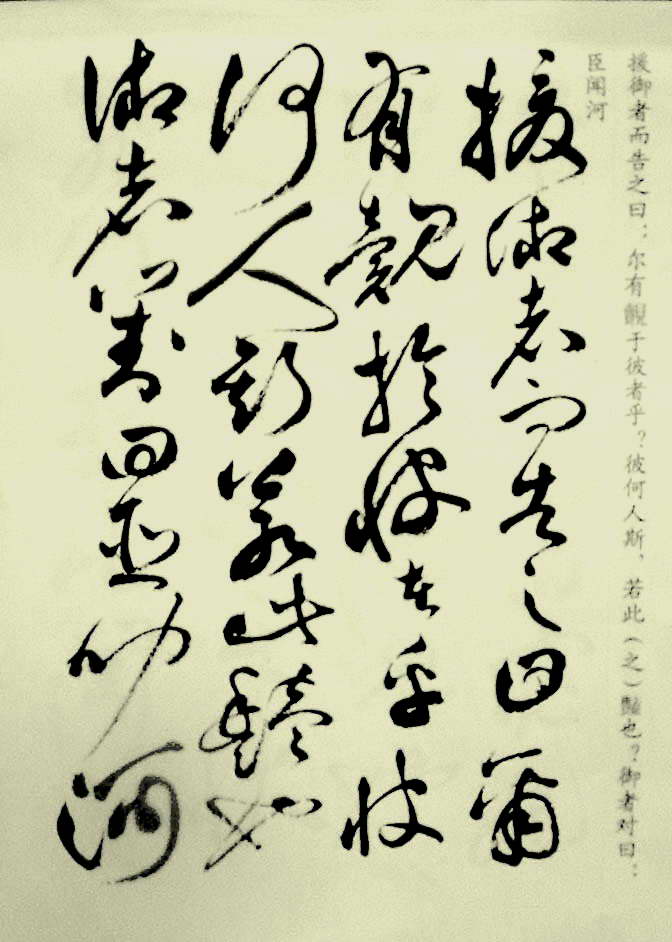 援御者而告之曰：尔有觏于彼者乎？彼何人斯，若此（之）豔也？御者对曰：
臣闻河
援御者而告之曰爾
有觀於彼者乎彼
何人斯若此豔也
御者對曰臣聞河